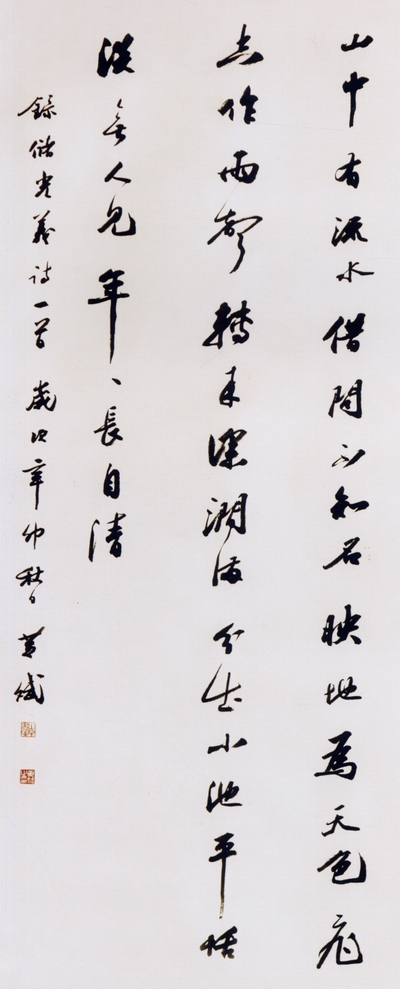 山中有流水借問不知名映地為天色飛
空作雨聲轉來深澗滿分出小池平恬
淡無人見年、長自清
錄儲光羲詩一首 歲次辛卯秋日